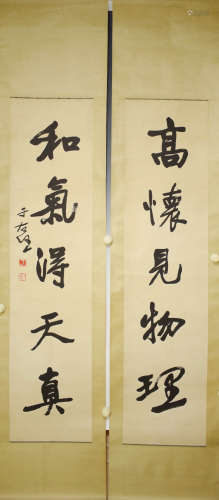 高懷見物理
和氣得天真
于右任